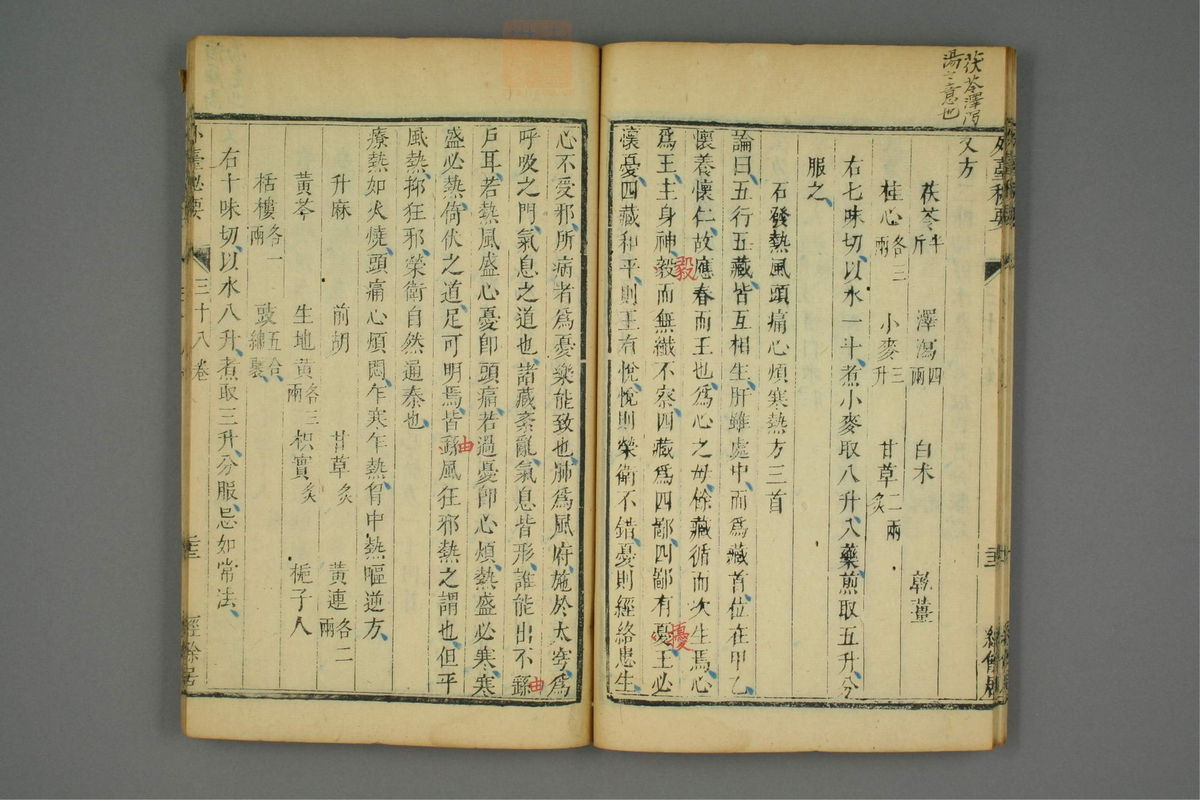 茯苓澤瀉
湯之意也
外臺秘要
又方
茯苓半斤 澤瀉四兩 白朮 乾薑
桂心各三兩 小麥三升 甘草二兩炙
右七味切以水一斗煮小麥取八升入藥煎取五升分
服之
石發熱風頭痛心煩寒熱方三首
論曰五行五藏皆互相生肝雖處中而爲藏首位在甲乙
懷養懷仁故應春而王也爲心之母餘藏循而次生焉心
爲王主身神毅而無纖不察四藏爲四鄙四鄙有憂王必
毅
擾
懷憂四藏和平則王有悅悅則榮衛不錯憂則經絡患生
心不受邪所病者爲憂樂能致也肺爲風府施於太穹爲
呼吸之門氣息之道也諸藏紊亂氣息皆形誰能出不繇
由
戸耳若熱風盛心憂卽頭痛若過憂卽心煩熱盛必寒寒
盛必熱倚伏之道足可明焉皆繇風狂邪熱之謂也但平
由
風熱抑狂邪榮衛自然通泰也
療熱如火燒頭痛心煩悶乍寒乍熱胷中熱嘔逆方
升麻 前胡 甘草炙 黃連各二兩
黃芩 生地黃各三兩 枳實炙 梔子人
栝樓各一兩 豉五合綿裹
右十味切以水八升煮取三升分服忌如常法
外臺秘要 三十八卷 經餘居